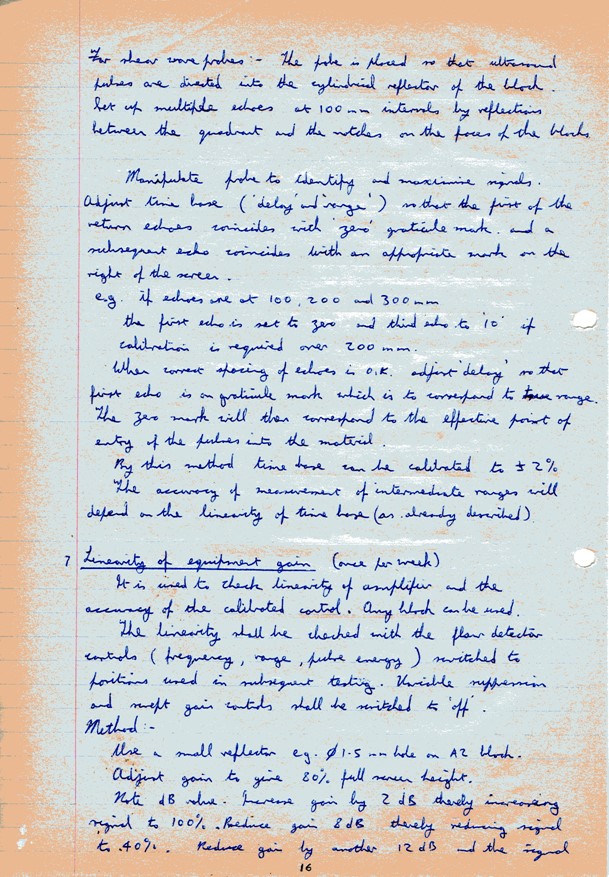 For shear wave probes :- The probe is placed so that ultrasound
pulses are directed into the cylindrical reflector of the block.
Set up multiple echoes at 100 mm intervals by reflections
between the quadrant and the notches on the faces of the blocks
Manipulate probe to identify and maximise signals.
Adjust time base ('delay' and 'range') so that the first of the
return echoes coincides with 'zero' graticule mark. and a
subsequent echo coincides with an appropriate mark on the
right of the screen.
e.g. if echoes are at 100, 200 and 300 mm
the first echo is set to zero and third echo to '10' if
calibration is required over 200 mm.
When correct spacing of echoes is O.K. adjust 'delay' so that
first echo is on graticule mark which is to correspond to true range.
The zero mark will then correspond to the effective point of
entry of the pulses into the material.
By this method time base can be calibrated to ± 2%
The accuracy of measurement of intermediate ranges will
depend on the linearity of time base (as already described)
7 Linearity of equipment gain (once per week)
It is used to check linearity of amplifier and the
accuracy of the calibrated control. Any block can be used.
The linearity shall be checked with the flaw detector
controls (frequency, range, pulse energy) switched to
positions used in subsequent testing. Variable suppression
and swept gain controls shall be switched to 'off'.
Method:-
Use a small reflector e.g. Ø1.5 mm hole on A2 block.
Adjust gain to give 80% full screen height.
Note dB value. Increase gain by 2 dB thereby increasing
signal to 100%. Reduce gain 8 dB thereby reducing signal
to 40%. Reduce gain by another 12 dB and the signal
16